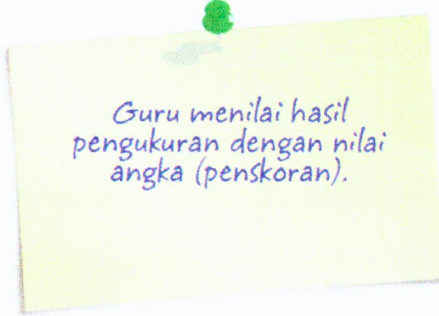 Guru menilai hasil
pengukuran dengan nilai
angka (penskoran).